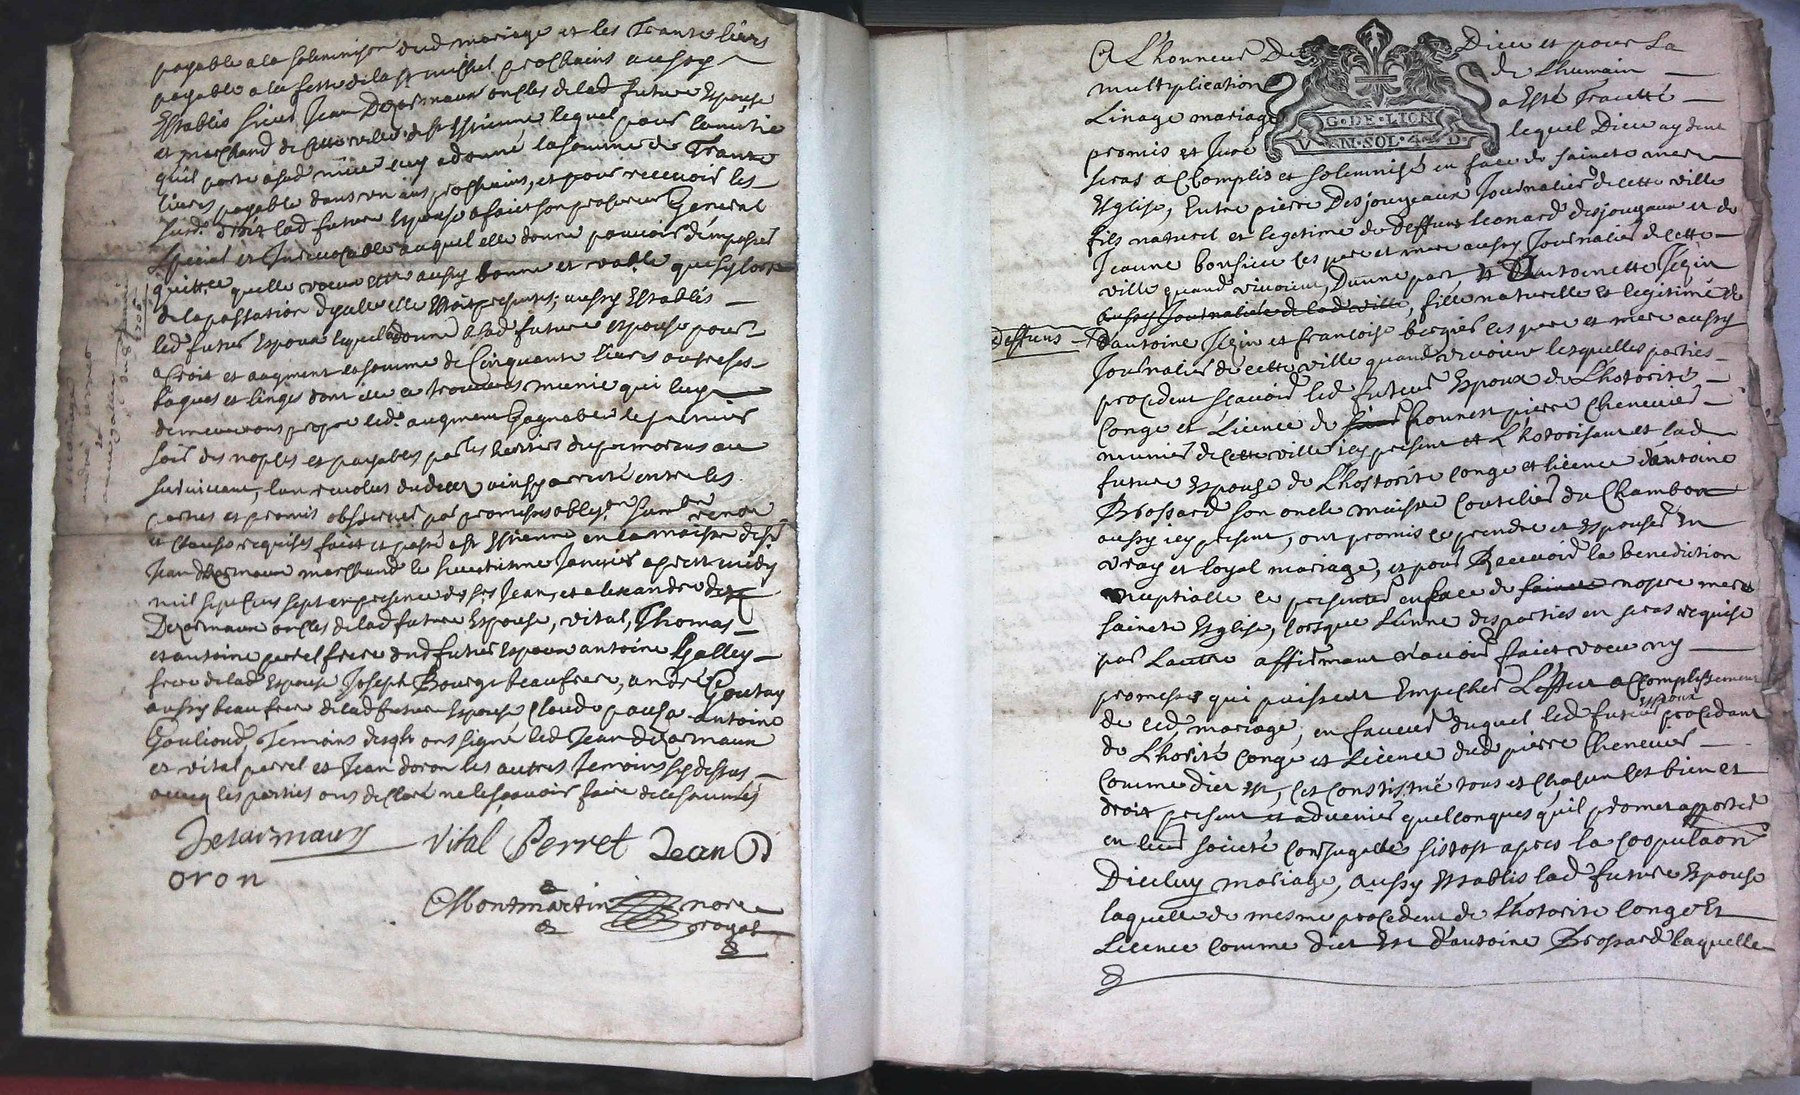 payable a la solemnison dud mariage et les Trante livres
payable a la feste de la st michel prochains aussy
Establis sieur Jean Dezarmaux oncles de lad future Espouse
et marchand de cette ville de st Estienne lequel pour lamitie
quil porte a sad niece luy a donné la somme de Trante
livres payable dans un ans prochains, et pour recevoir les
susd. droits lad future Espouse a faict son procureur General
special et Irrevocable auquel elle donne pouvoir d'en passer
quittce quelle veut estre aussy bonne et vable que sy lors
de la passation dycelle elle Estoit presente; aussy Establis
led futur Espoux lequel a donné a lad future espouse pour
acroit et augment la somme de Cinquante livres outre ses
bagues et linges dont elle ce trouvera munie qui luy
demeureront propre led. augment Gagnable le premier
soir des nopces et payables par les heritiers du premourant au
survivant, lan revolus du deces ainsy arresté entre les
parties et promis observer par promesses oblig.on sum.on renon
et clauses requises faict et passé a st Estienne en la maison dud sr
Jean dezarmaux marchand le huictieme Janvier apres midy
mil sept cens sept en presence des srs Jean, et alexandre
Dezarmaux oncles de lad future Espouse, vital, Thomas
et antoine perrel frere dud futur Espoux antoine Galley
frere de lad Espouse Joseph Bourgt beaufrere, andré Goutay
aussy beau frere de lad future Espouse Claude pausa antoine
Gouliond, Temoins desqls ont signé led Jean dezarmaux
et vital perrel et Jean doron les autres temoins sy dessus
avecq les parties ont declaré ne le sçavoir faire de ce sommés
Dezarmaux Vital Perret Jean D
oron
Montmartin nore
royal
A L'honneur De Dieu et pour La
multiplication de L'humain
Linage mariage a Esté Traitté
G·DE·LION
promis et Juré lequel Dieu aydent
V EN·SOL·4 D·
seras accomplis et solemnisé en face de saincte mere
Esglise, Entre pierre Desjoyeaux Journalier de cette ville
fils naturel et legitime de deffunt leonard desjoyaux et de
Jeanne bonsieu ces pere et mere aussy Journalier de cette
ville quand vivoient, Dune part, et antoinette Jejin
aussy Journaliere de lad ville, fille naturelle et legitime de
deffuns
d'antoine Jejin et francoise bergier les pere et mere aussy
Journalier de cette ville quand vivoient lesquelles parties
procedent scavoir led futeur Espoux de L'hotorité
Conge et Licence de sieur honnest pierre Chenevier
munier de cette ville icy present et L'hotorisant et lad
future Espouse de L'hostorite conge et licence d'antoine
Brossard son oncle maistre Coutelier du Chambon
aussy icy present, ont promis ce prendre et Espouser En
vray et loyal mariage, et pour Recevoir la benediction
nuptialle ce presenter en face de saincte nostre mere
saincte Esglise, lorsque L'unne des parties en seras requise
par Lautre affirmant n'avoir faict voeu ny
promesses qui puissent Empecher L'effect accomplissement
de led, mariage, en faveur duquel led futeur Espoux procedant
de L'horité Conge et Licence dud pierre Chenevier
Comme dict Est, cet constistué tous et chacun ces bien et
droit present et advenier quelconques qu'il promet apporter
en leur societé Conjugalle sistost apres la coopulaon
Diceluy mariage, aussy Establis lad future Espouse
laquelle de mesme procedent de L'hotorite Conge Et
Licence Comme dict Est d'antoine Brossard laquelle